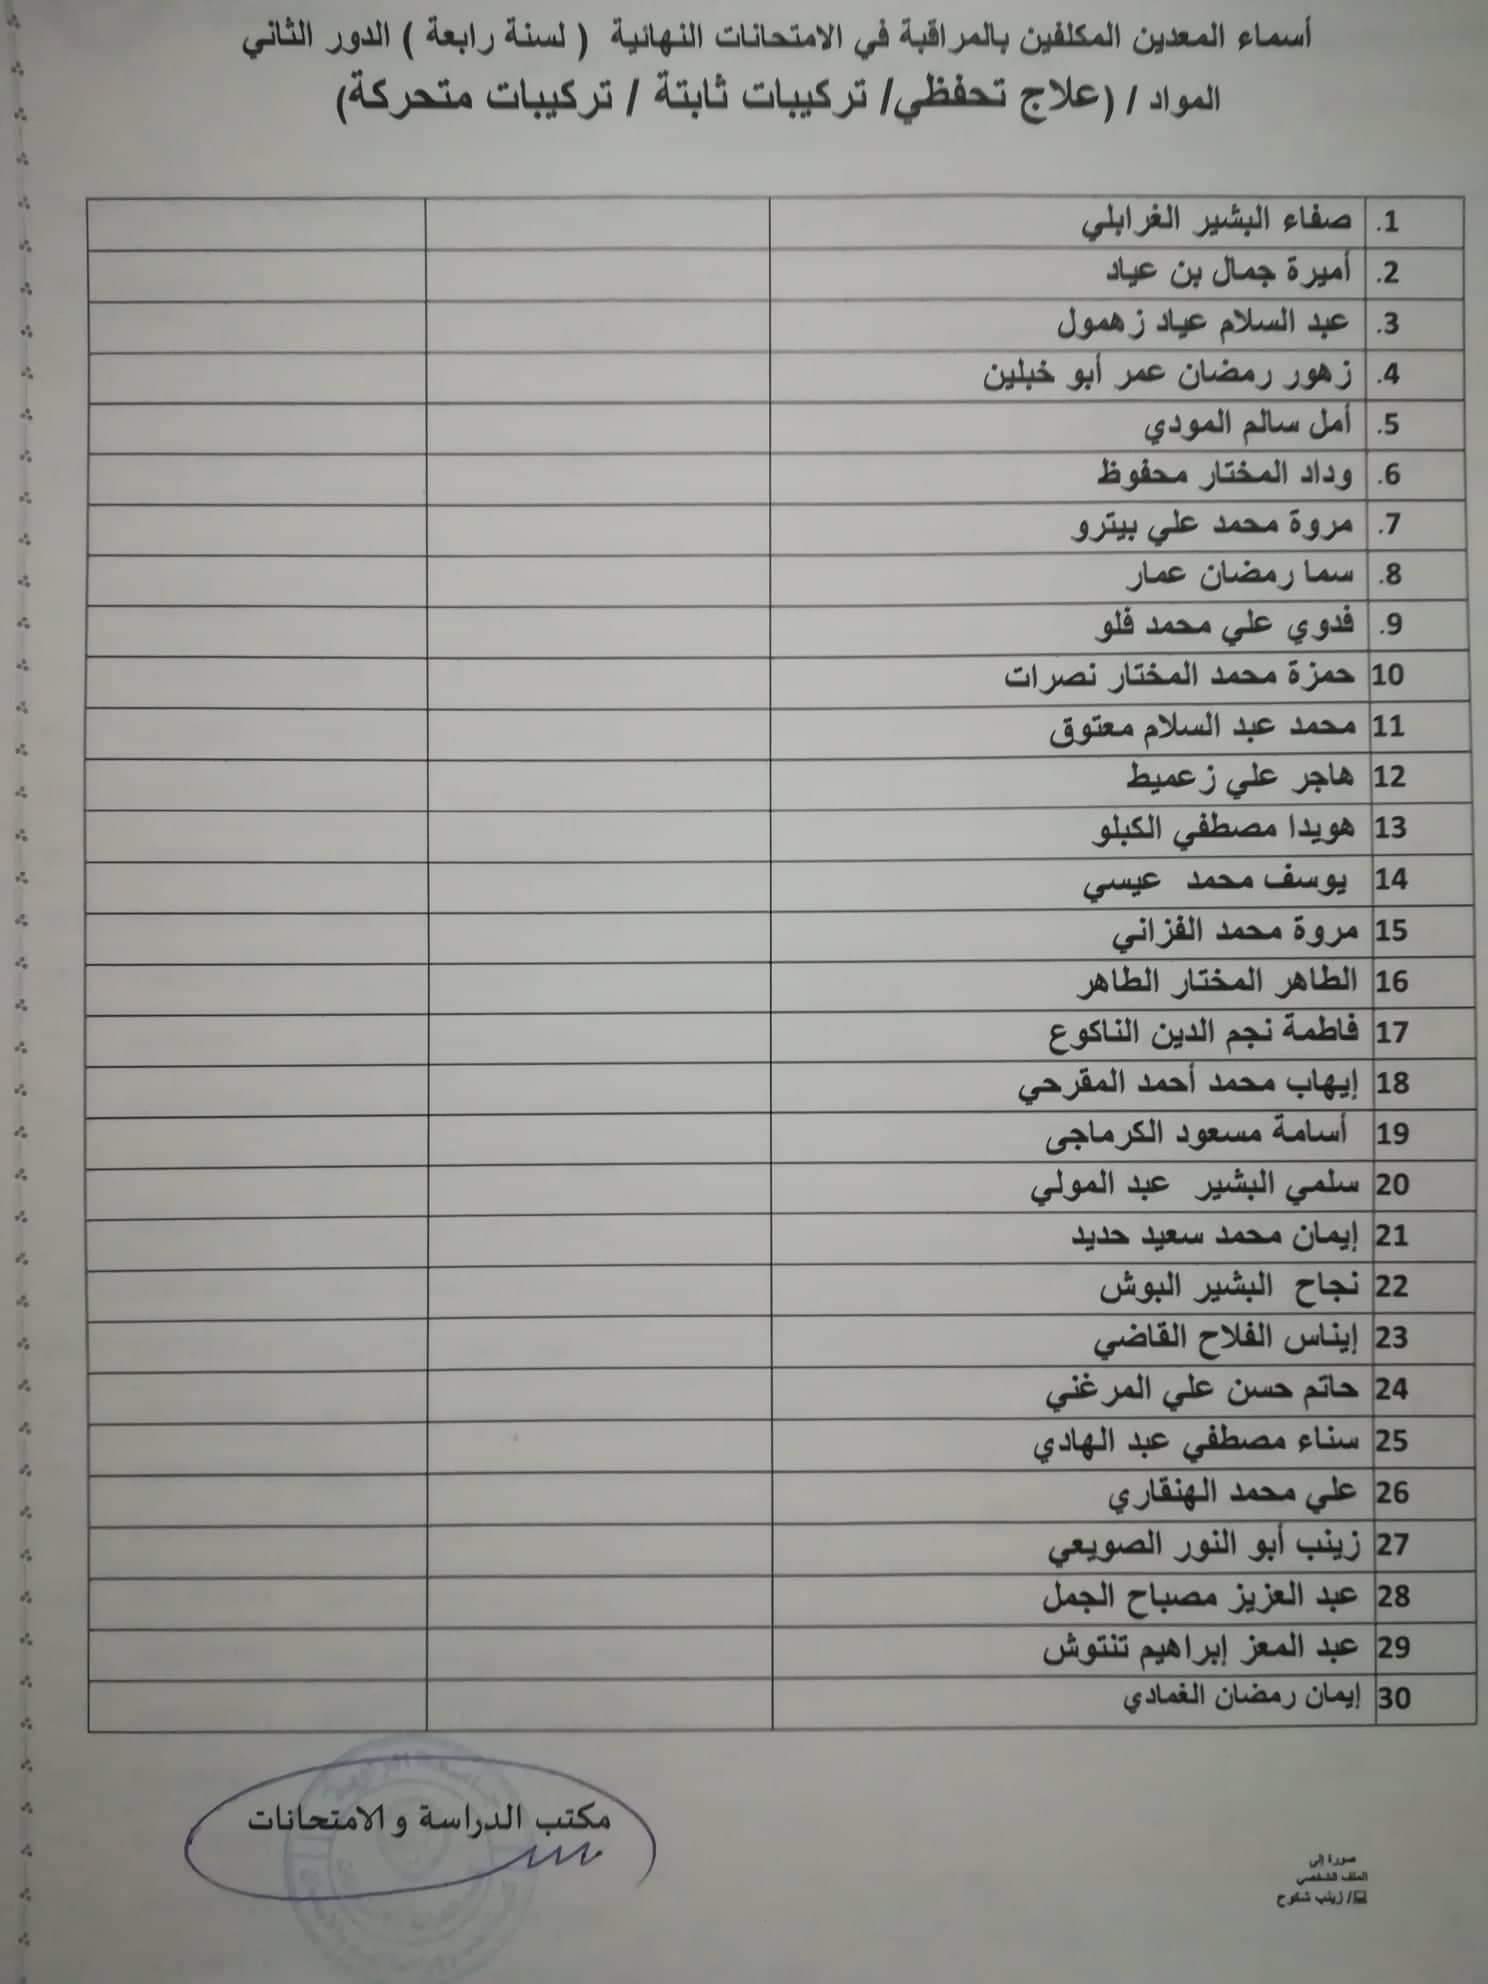 أسماء المعدين المكلفين بالمراقبة في الامتحانات النهائية ( لسنة رابعة ) الدور الثاني
المواد / (علاج تحفظي/ تركيبات ثابتة / تركيبات متحركة)
1. صفاء البشير الغرابلي
2. أميرة جمال بن عياد
3. عبد السلام عياد زهمول
4. زهور رمضان عمر أبو خبلين
5. أمل سالم المودي
6. وداد المختار محفوظ
7. مروة محمد علي بيترو
8. سما رمضان عمار
9. فدوي علي محمد فلو
10 حمزة محمد المختار نصرات
11 محمد عبد السلام معتوق
12 هاجر علي زعميط
13 هويدا مصطفي الكبلو
14 يوسف محمد عيسي
15 مروة محمد الفزاني
16 الطاهر المختار الطاهر
17 فاطمة نجم الدين الناكوع
18 إيهاب محمد أحمد المقرحي
19 أسامة مسعود الكرماجى
20 سلمي البشير عبد المولي
21 إيمان محمد سعيد حديد
22 نجاح البشير البوش
23 إيناس الفلاح القاضي
24 حاتم حسن علي المرغني
25 سناء مصطفي عبد الهادي
26 علي محمد الهنقاري
27 زينب أبو النور الصويعي
28 عبد العزيز مصباح الجمل
29 عبد المعز إبراهيم تنتوش
30 إيمان رمضان الغمادي
مكتب الدراسة والامتحانات
صورة إلى
الملف الشخصي
/ زينب شكوح